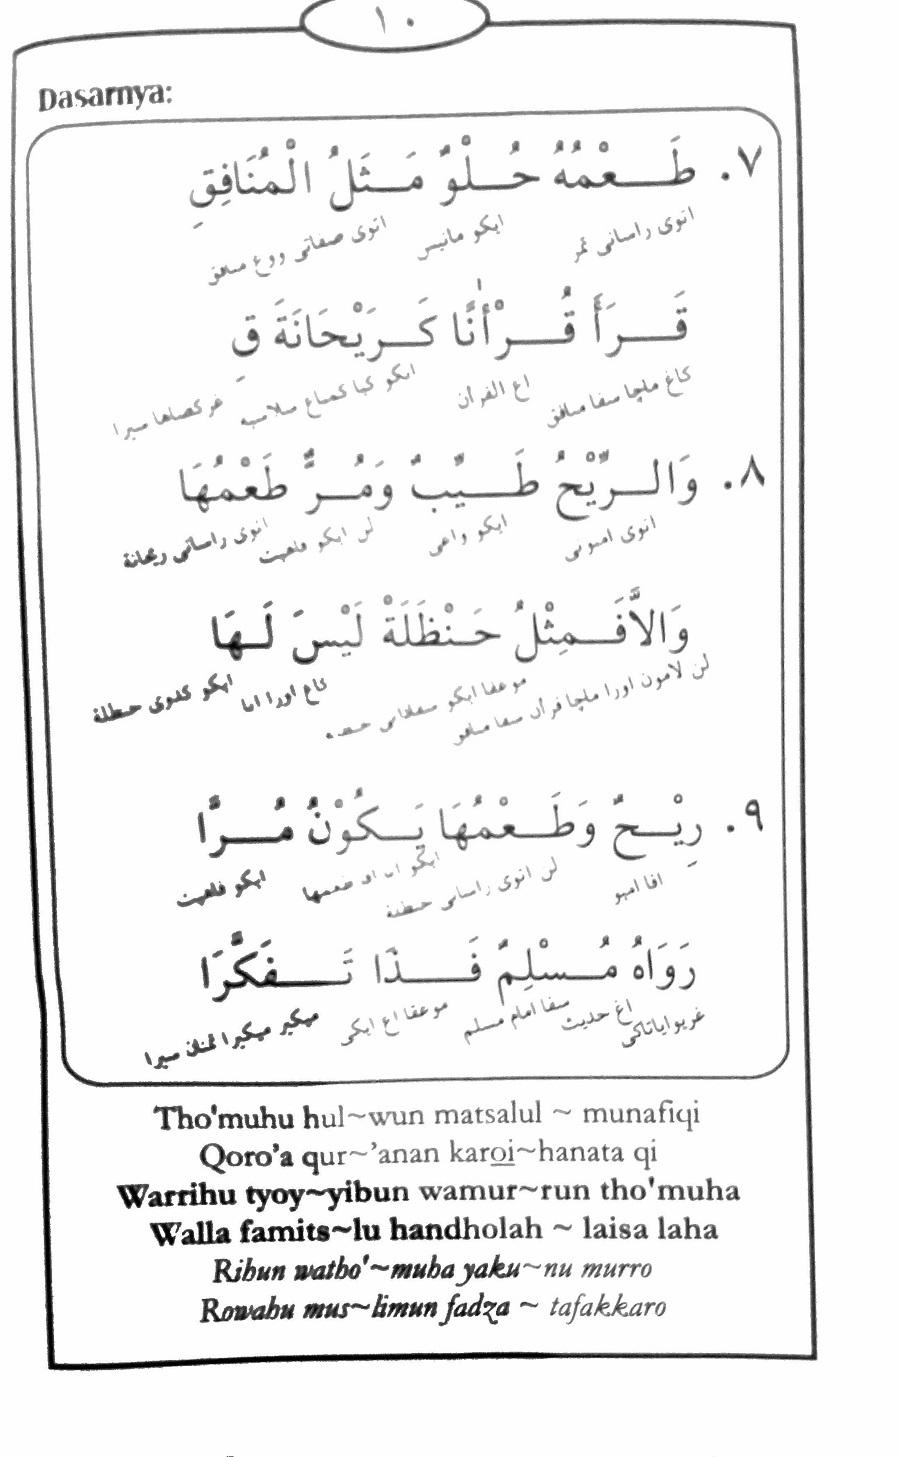 ١٠
Dasarnya:
٧. طَعْمُهُ حُلْوٌ مَثَلُ الْمُنَافِقِ
انوى راسانى تمر ايكو مانيس انوى صفاتى ووع منافق
قَرَأَ قُرْأٰنًا كَرَيْحَانَةَ قِ
كاغ ملچا سفا منافق اع القرآن ايكو كيا
٨. وَالرِّيْحُ طَيِّبٌ وَمُرٌّ طَعْمُهَا
انوى امبونى ايكو واعى لن ايكو فاهيت انوى راسانى ريحانة
وَالاَّفَمِثْلُ حَنْظَلَةْ لَيْسَ لَهَا
لن لامون اورا ملچا قرآن سفا منافق موعفا ايكو كاغ اورا انا ايكو كدوى حنظلة
٩. رِيْحٌ وَطَعْمُهَا يَكُوْنُ مُرًّا
افا امبو لن انوى راسانى حنظلة ايكو انا اف طعمها ايكو فاهيت
رَوَاهُ مُسْلِمٌ فَذَا تَفَكَّرَا
اغ حديث سفا امام مسلم موعفا اع ايكى ميكير ميكيرا تمنان سيرا
Tho'muhu hul~wun matsalul ~ munafiqi
Qoro'a qur~'anan karoi~hanata qi
Warrihu tyoy~yibun wamur~run tho'muha
Walla famits~lu handholah ~ laisa laha
Rihun watho'~muha yaku~nu murro
Rowahu mus~limun fadza ~ tafakkaro